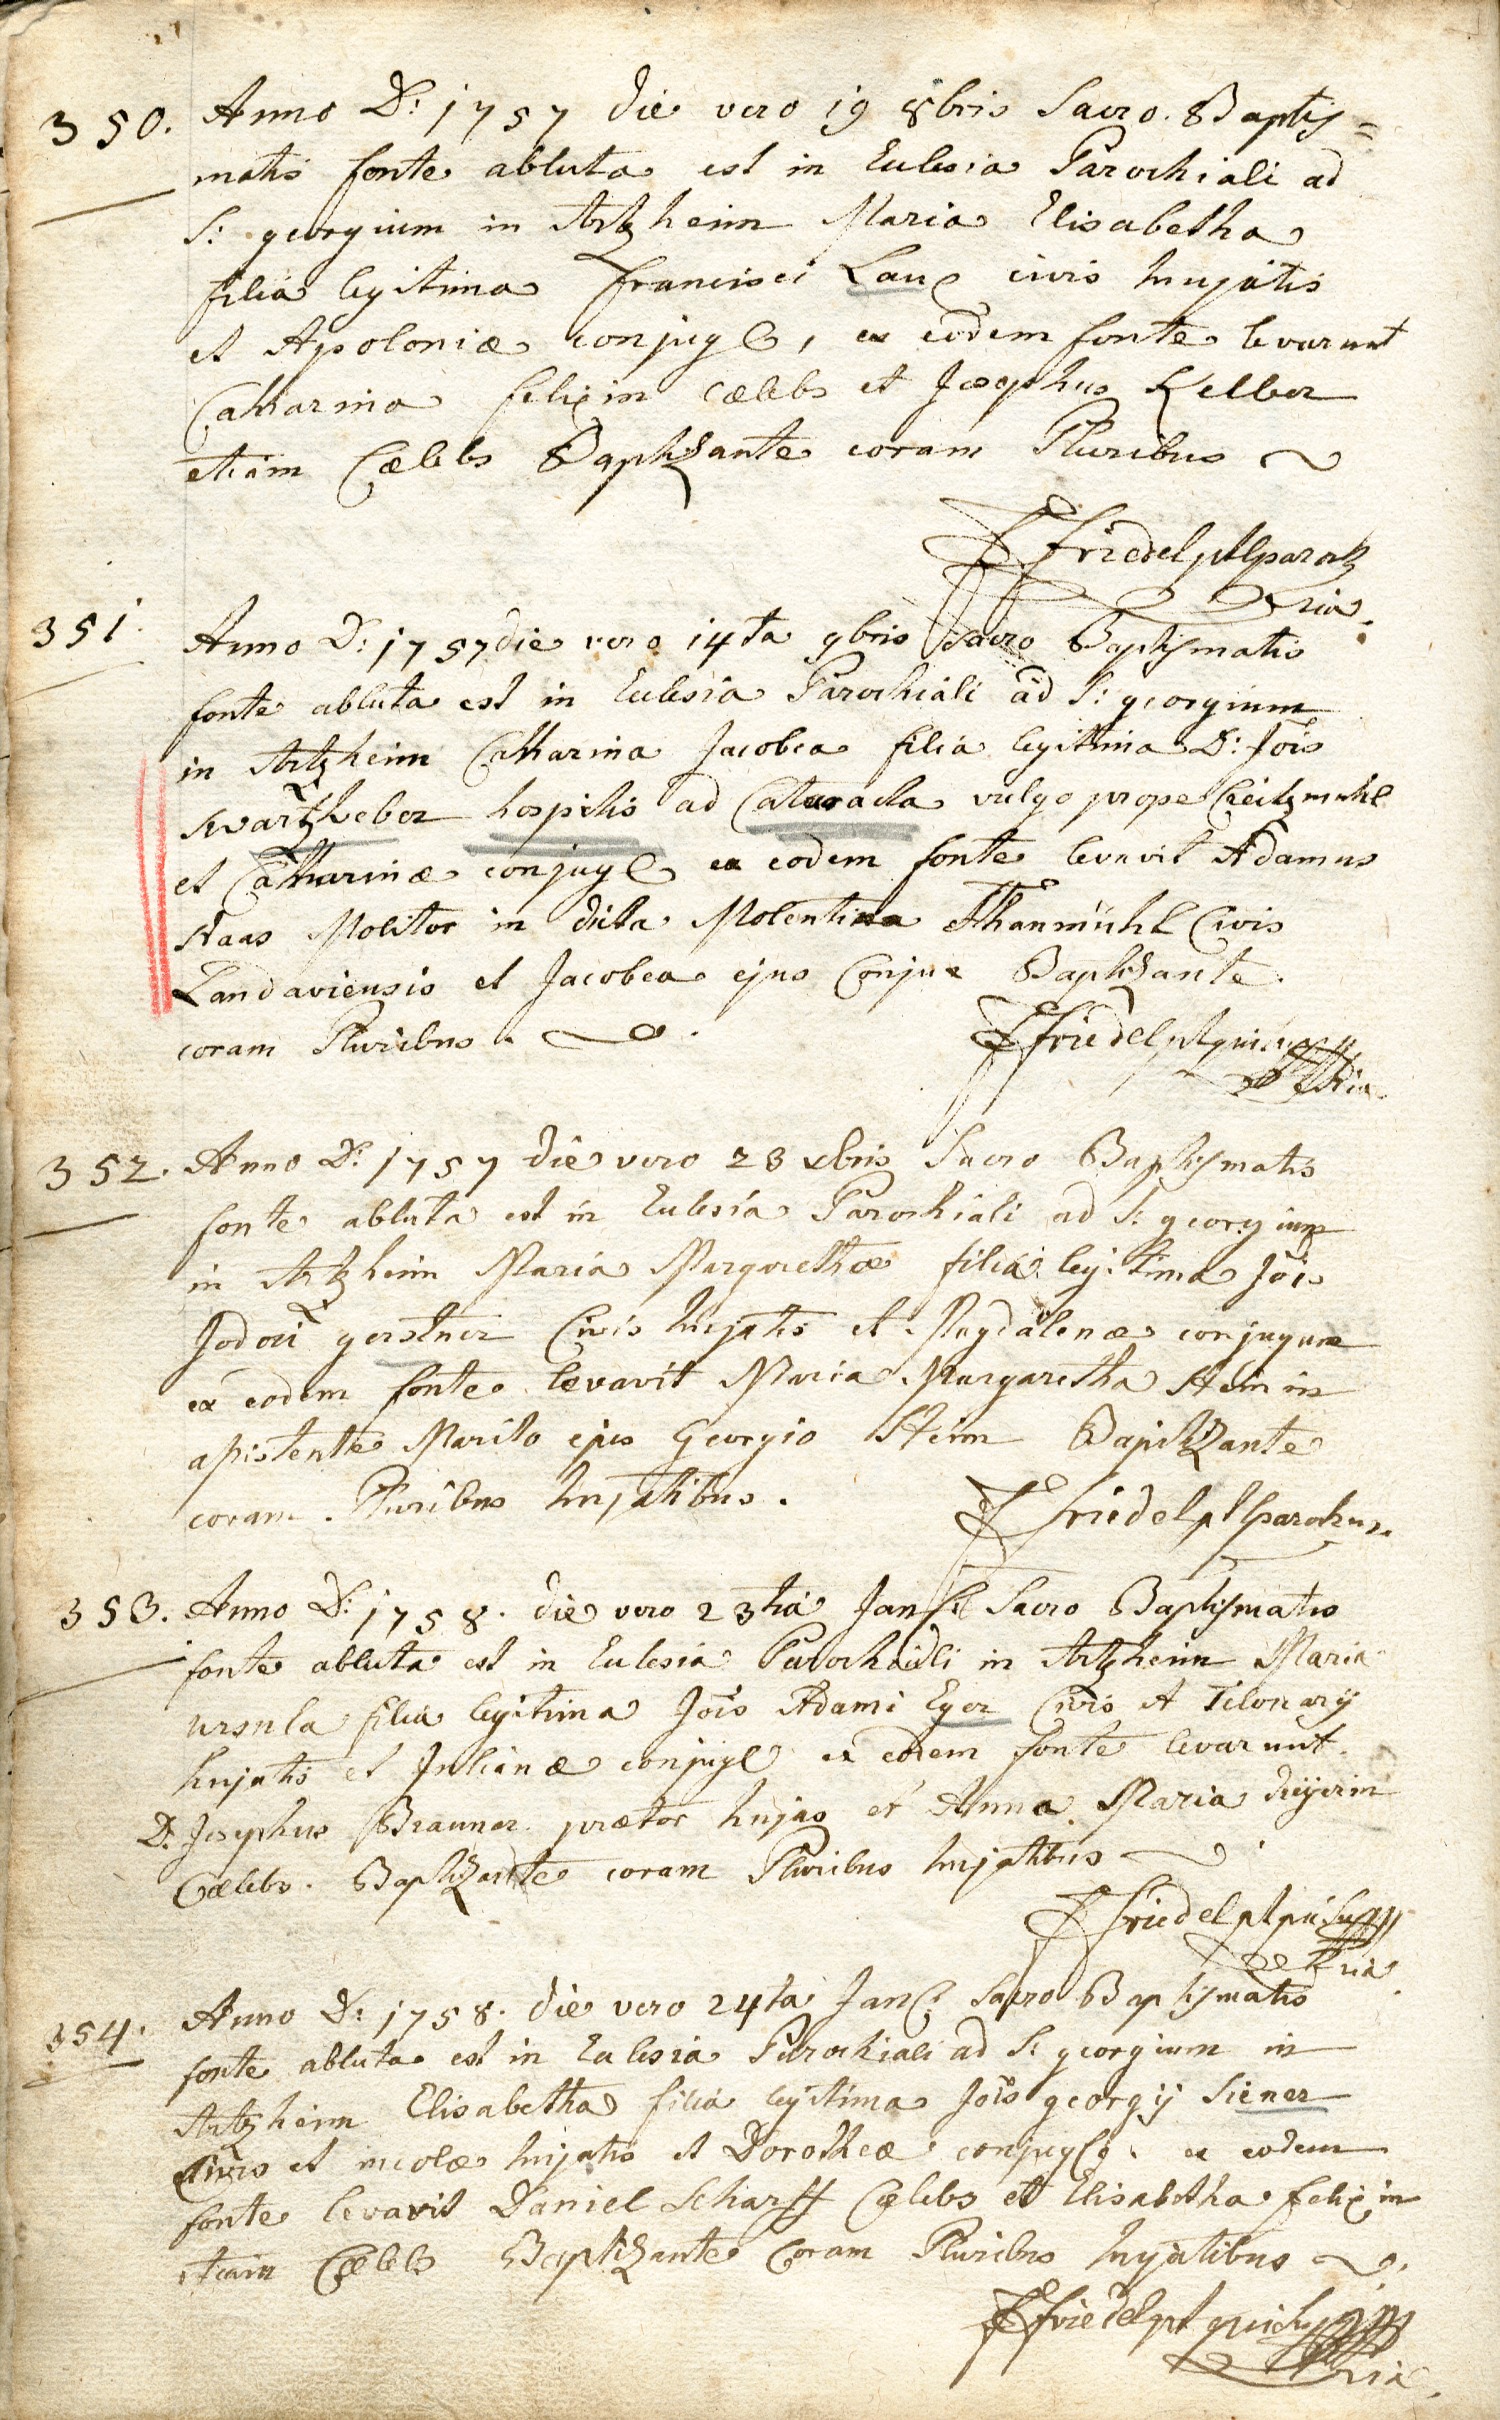 350. Anno D: 1757 die vero 19 8bris Sacro Baptis=
matis fonte abluta est in Eclesia Parochiali ad
S: georgium in Artzheim Maria Elisabetha
filia legitima francisci Laux civis hujatis
et Apoloniæ conjug, ex eodem fonte levarunt
Catharina felixin Cælebs et Josephus Kelber
etiam Cælebs Baptizante coram Pluribus
Friedel pl parochus
351. Anno D: 1757 die vero 14ta 9bris Sacro Baptismatis
fonte abluta est in Eclesia Parochiali ad S: georgium
in Artzheim Catharina Jacobea filia legitima D: Jois
Swartzweber hospitis ad Cataracta vulgo prope
et Catharinæ conjug ex eodem fonte levavit Adamus
Haas Molitor in dicta Molentina Thanmühl Civis
Landaviensis et Jacobea ejus Conjux Baptizante
coram Pluribus.
Friedel pl
352. Anno D: 1757 die vero 23 xbris Sacro Baptismatis
fonte abluta est in Eclesia Parochiali ad S: georgium
in Artzheim Maria Margarethæ filia legitima Jois
Jodoci gerstner Civis hujatis et Magdalenæ conjugum
ex eodem fonte levavit Maria Margaretha Heimin
assistente Marito ejus Georgio Heim Baptizante
coram Pluribus hujatibus.
Friedel pl parochus.
353. Anno D: 1758. die vero 23tia Sacro Baptismatis
fonte abluta est in Eclesia Parochiali in Artzheim Maria
ursula filia legitima Jois Adami Eger Civis et Telonarij
hujatis et Julianæ conjug ex eodem fonte levarunt
D. Josephus Brauner prætor hujas et Anna Maria
Cælebs. Baptizante coram Pluribus hujatibus
Friedel pl
354. Anno D: 1758. die vero 24ta Jan Sacro Baptismatis
fonte abluta est in Eclesia Parochiali ad S: georgium in
Artzheim Elisabetha filia legitima Jois georgij Siener
Civis et incolæ hujatis et Dorotheæ conjug. ex eodem
fonte levavit Daniel Scharff Cælebs et Elisabetha felixin
etiam Cælebs Baptizante Coram Pluribus hujatibus
Friedel pl